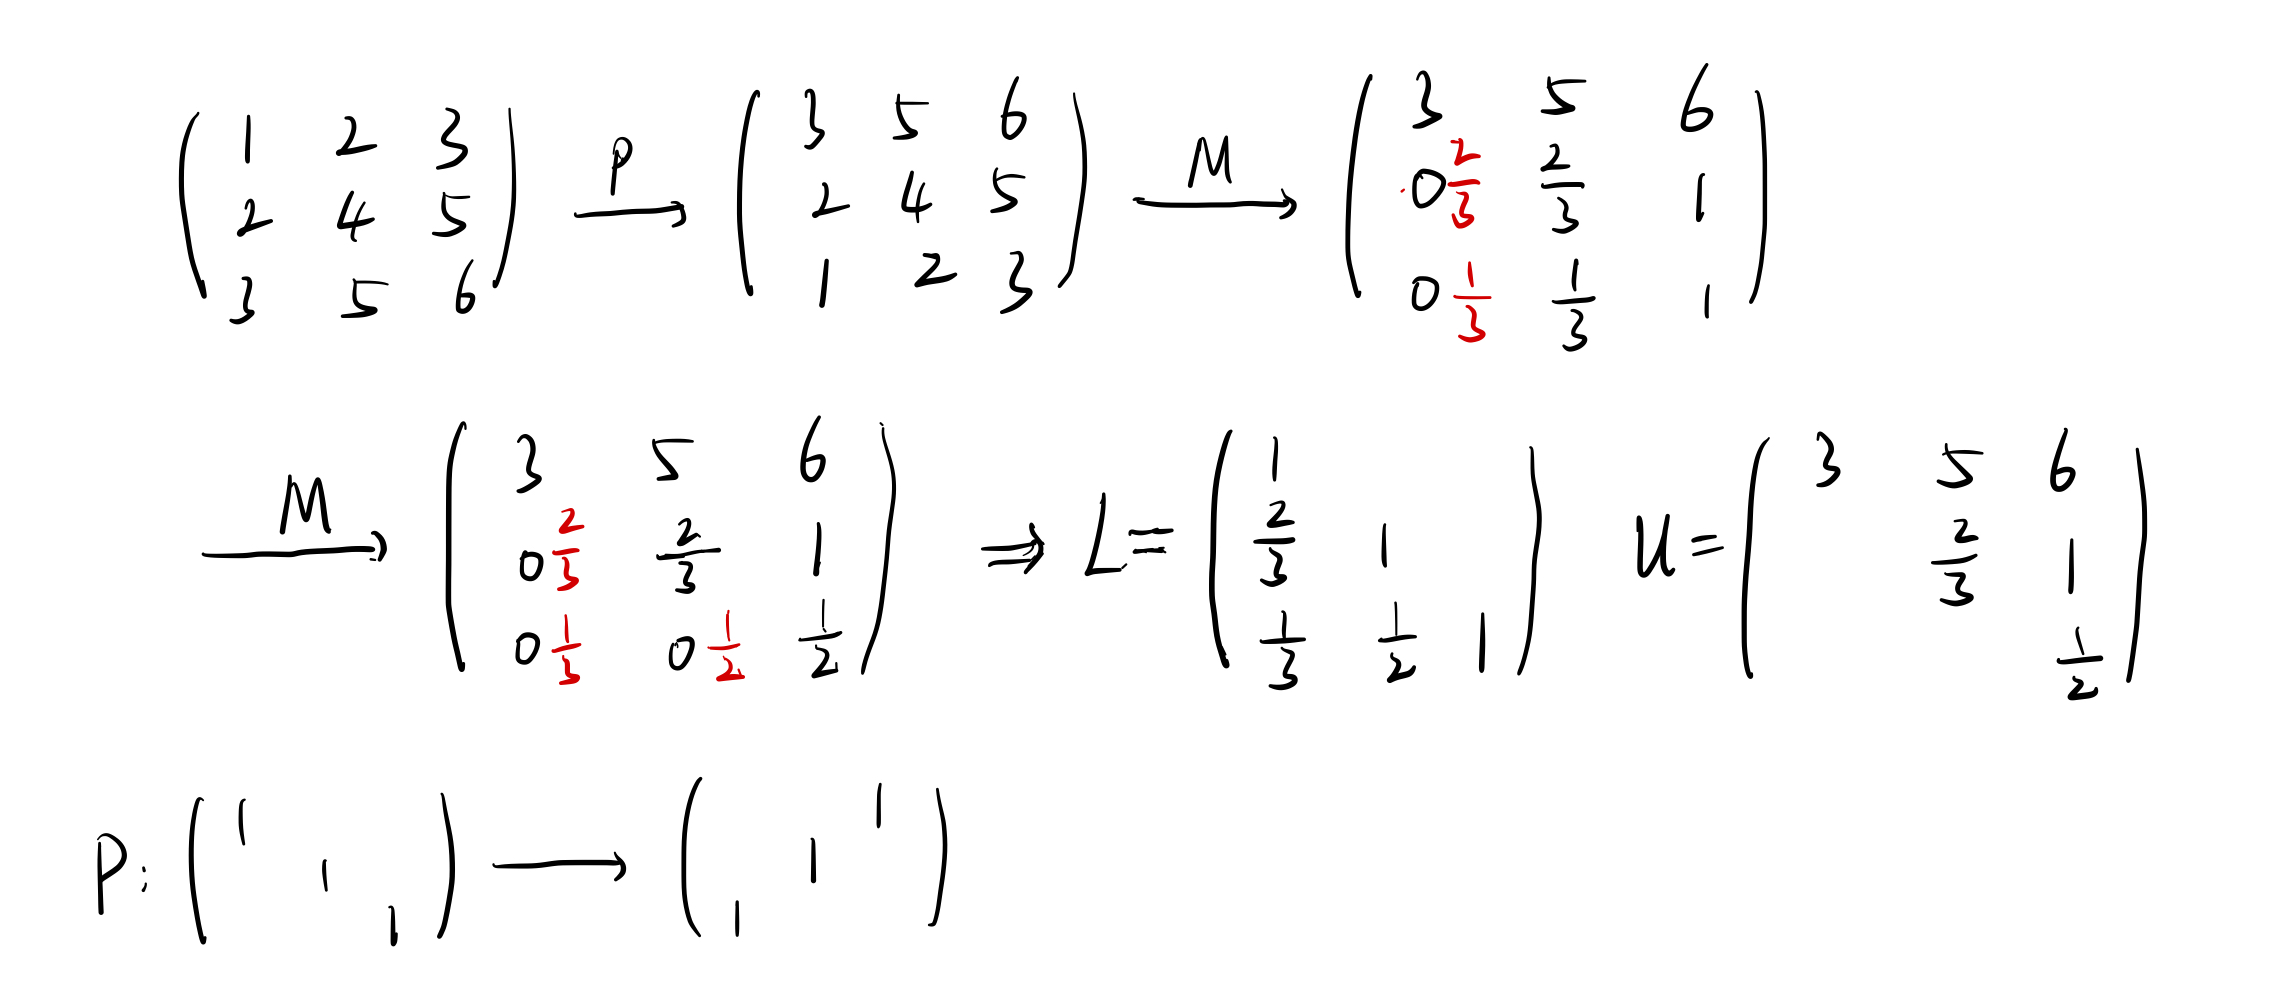 ( 1 2 3 ; 2 4 5 ; 3 5 6 ) P→ ( 3 5 6 ; 2 4 5 ; 1 2 3 ) M→ ( 3 5 6 ; 0 2/3 2/3 1 ; 0 1/3 1/3 1 )
M→ ( 3 5 6 ; 0 2/3 2/3 1 ; 0 1/3 0 1/2 1/2 ) ⇒ L = ( 1 ; 2/3 1 ; 1/3 1/2 1 ) U = ( 3 5 6 ; 2/3 1 ; 1/2 )
P: ( 1 ; 1 ; 1 ) → ( 1 ; 1 ; 1 )